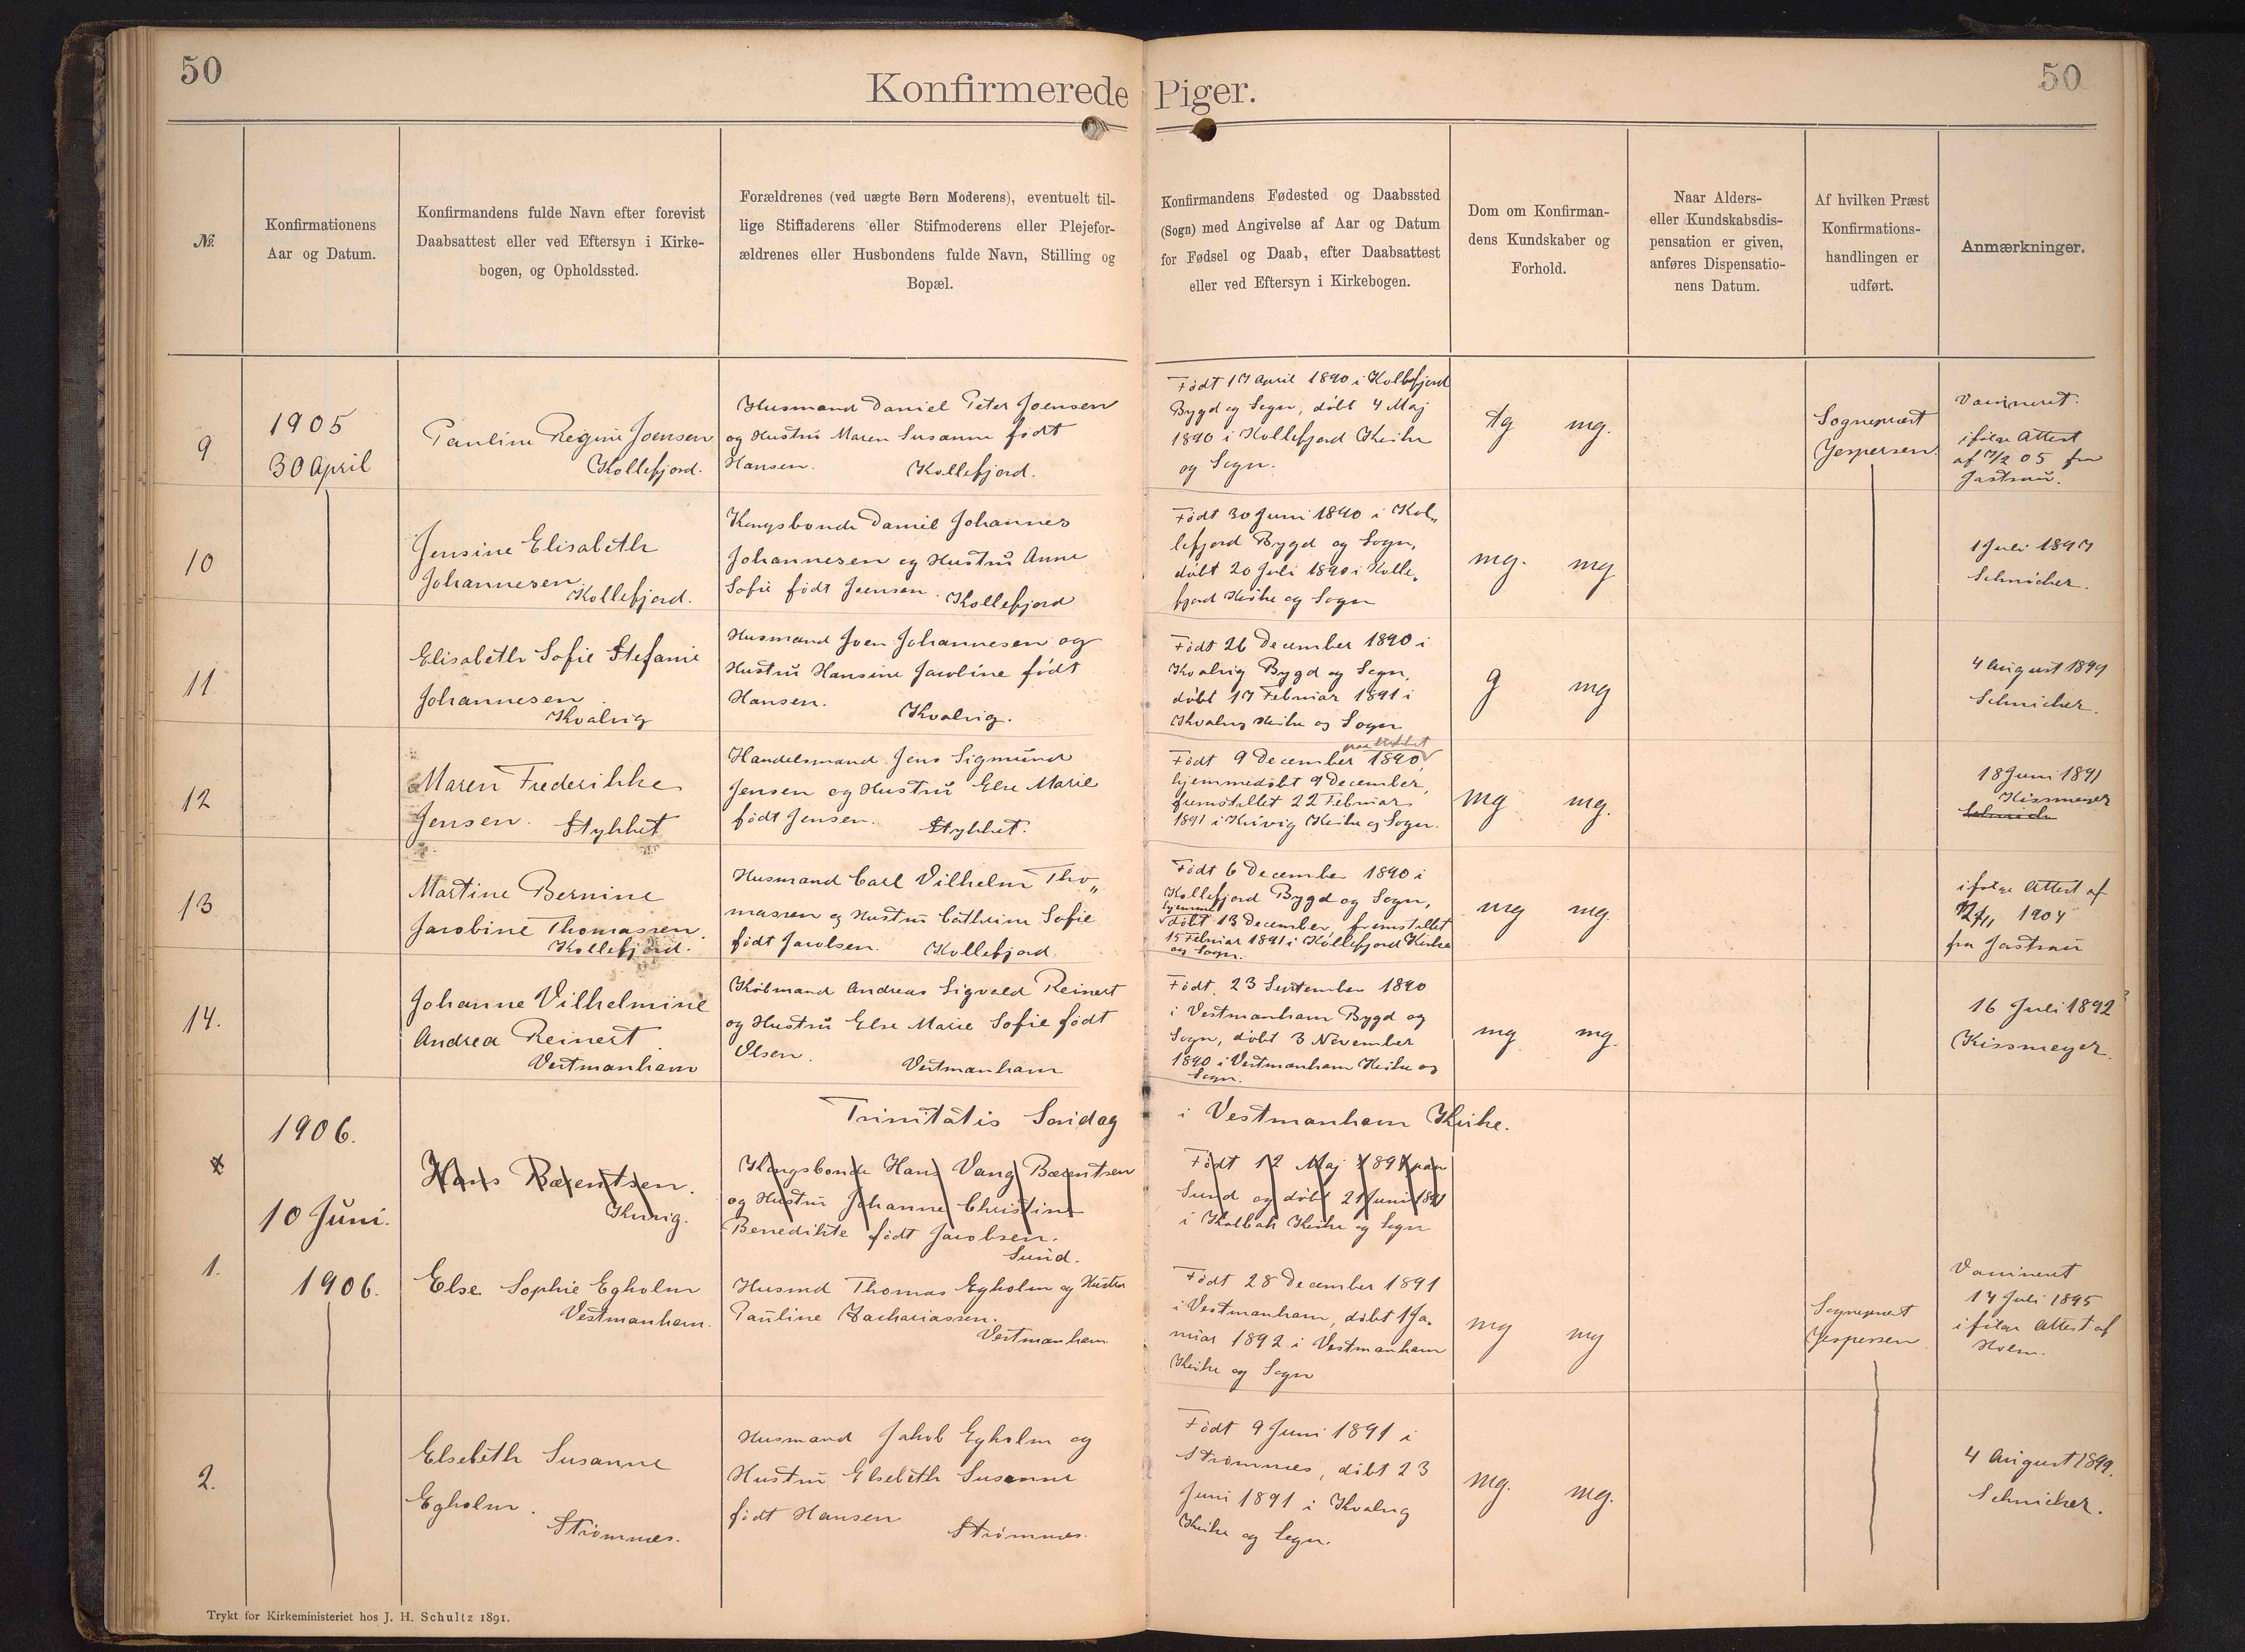 50
50
Konfirmerede Piger.
№
Konfirmationens
Aar og Datum.
Konfirmandens fulde Navn efter forevist
Daabsattest eller ved Eftersyn i Kirke-
bogen, og Opholdssted.
Forældrenes (ved uægte Børn Moderens), eventuelt til-
lige Stiffaderens eller Stifmoderens eller Plejefor-
ældrenes eller Husbondens fulde Navn, Stilling og
Bopæl.
Konfirmandens Fødested og Daabssted
(Sogn) med Angivelse af Aar og Datum
for Fødsel og Daab, efter Daabsattest
eller ved Eftersyn i Kirkebogen.
Dom om Konfirman-
dens Kundskaber og
Forhold.
Naar Alders-
eller Kundskabsdis-
pensation er given,
anføres Dispensatio-
nens Datum.
Af hvilken Præst
Konfirmations-
handlingen er
udført.
Anmærkninger.
9
1905
30 April
Pauline Regine Joensen
Kollefjord.
Husmand Daniel Peter Joensen
og Hustru Maren Susanne født
Hansen. Kollefjord.
Født 17 April 1890 i Kollefjord
Bygd og Sogn, døbt 4 Maj
1890 i Kollefjord Kirke
og Sogn.
tg mg.
Sognepræst
Jespersen.
Vaccineret.
ifølge Attest
af 7/2 05 fra
Jastrau.
10
Jensine Elisabeth
Johannesen.
Kollefjord.
Kongsbonde Daniel Johannes
Johannesen og Hustru Anne
Sofie født Joensen. Kollefjord
Født 30 Juni 1890 i Kol„
lefjord Bygd og Sogn,
døbt 20 Juli 1890 i Kolle„
fjord Kirke og Sogn
mg. mg
1 Juli 1897
Schnicher.
11
Elisabeth Sofie Stefanie
Johannesen.
Kvalvig
Husmand Joen Johannesen og
Hustru Hansine Jacobine født
Hansen. Kvalvig.
Født 26 December 1890 i
Kvalvig Bygd og Sogn,
døbt 17 Februar 1891 i
Kvalvig Kirke og Sogn
g mg
4 August 1899
Schnicher.
12
Maren Frederikke
Jensen. Stykket
Handelsmand Jens Sigmund
Jensen og Hustru Else Marie
født Jensen. Stykket.
paa Stykket
Født 9 December 1890,
hjemmedøbt 9 December,
fremstillet 22 Februar
1891 i Kvivig Kirke og Sogn.
mg mg.
18 Juni 1891
Kissmeyer
13
Martine Bernine
Jacobine Thomassen.
Kollefjord.
Husmand Carl Vilhelm Tho„
massen og Hustru Cathrine Sofie
født Jacobsen. Kollefjord.
Født 6 December 1890 i
Kollefjord Bygd og Sogn,
hjemme
døbt 13 December, fremstillet
15 Februar 1891 i Kollefjord Kirke
og Sogn.
mg mg.
ifølge Attest af
1904
fra Jastrau
14.
Johanne Vilhelmine
Andrea Reinert.
Vestmanhavn
Købmand Andreas Sigvald Reinert
og Hustru Else Marie Sofie født
Olsen. Vestmanhavn
Født 23 September 1890
i Vestmanhavn Bygd og
Sogn, døbt 3 November
1890 i Vestmanhavn Kirke og
Sogn.
mg mg.
16 Juli 1892
Kissmeyer.
1906.
Trinitatis Søndag i Vestmanhavn Kirke.
10 Juni.
Hans Bærentsen.
Kvivig.
Kongsbonde Hans Vang Bærentsen
og Hustru Johanne Christine
Benedikte født Jacobsen.
Sund.
Født 12 Maj 1891 paa
Sund og døbt 21 Juni 1891
i Kalbak Kirke og Sogn
1.
1906.
Else Sophie Egholm
Vestmanhavn.
Husmd Thomas Egholm og Hustru
Pauline Zachariassen.
Vestmanhavn
Født 28 December 1891
i Vestmanhavn, døbt 1 Ja„
nuar 1892 i Vestmanhavn
Kirke og Sogn
mg mg
Sognepræst
Jespersen.
Vaccineret
17 Juli 1895
ifølge Attest af
Holm.
2.
Elsebeth Susanne
Egholm.
Strømnes.
Husmand Jakob Egholm og
Hustru Elsebeth Susanne
født Hansen Strømnes.
Født 9 Juni 1891 i
Strømnes, døbt 23
Juni 1891 i Kvalvig
Kirke og Sogn.
mg. mg.
4 August 1899.
Schnicher.
Trykt for Kirkeministeriet hos J. H. Schultz 1891.